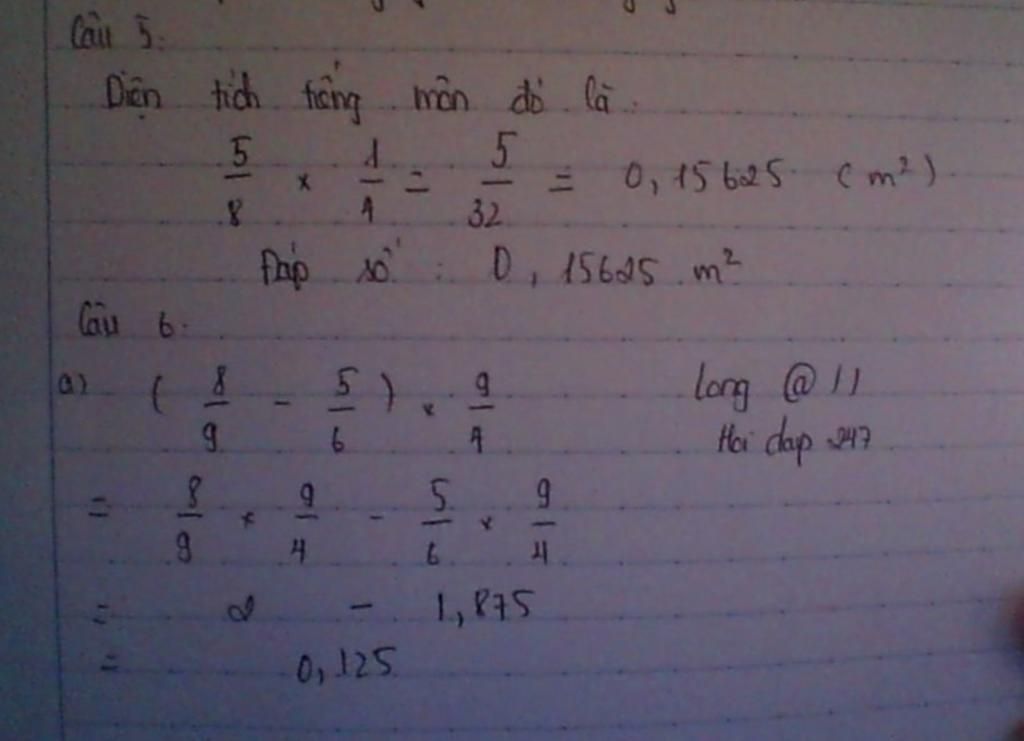 Câu 5:
Diện tích tiếng môn đó là:
5/8 × 1/4 = 5/32 = 0,15625 (m²)
Đáp số: 0,15625 m²
Câu 6:
a) (8/9 - 5/6) × 9/4
Long @ 11
Hoi dap 247
= 8/9 × 9/4 - 5/6 × 9/4
= 2 - 1,875
= 0,125